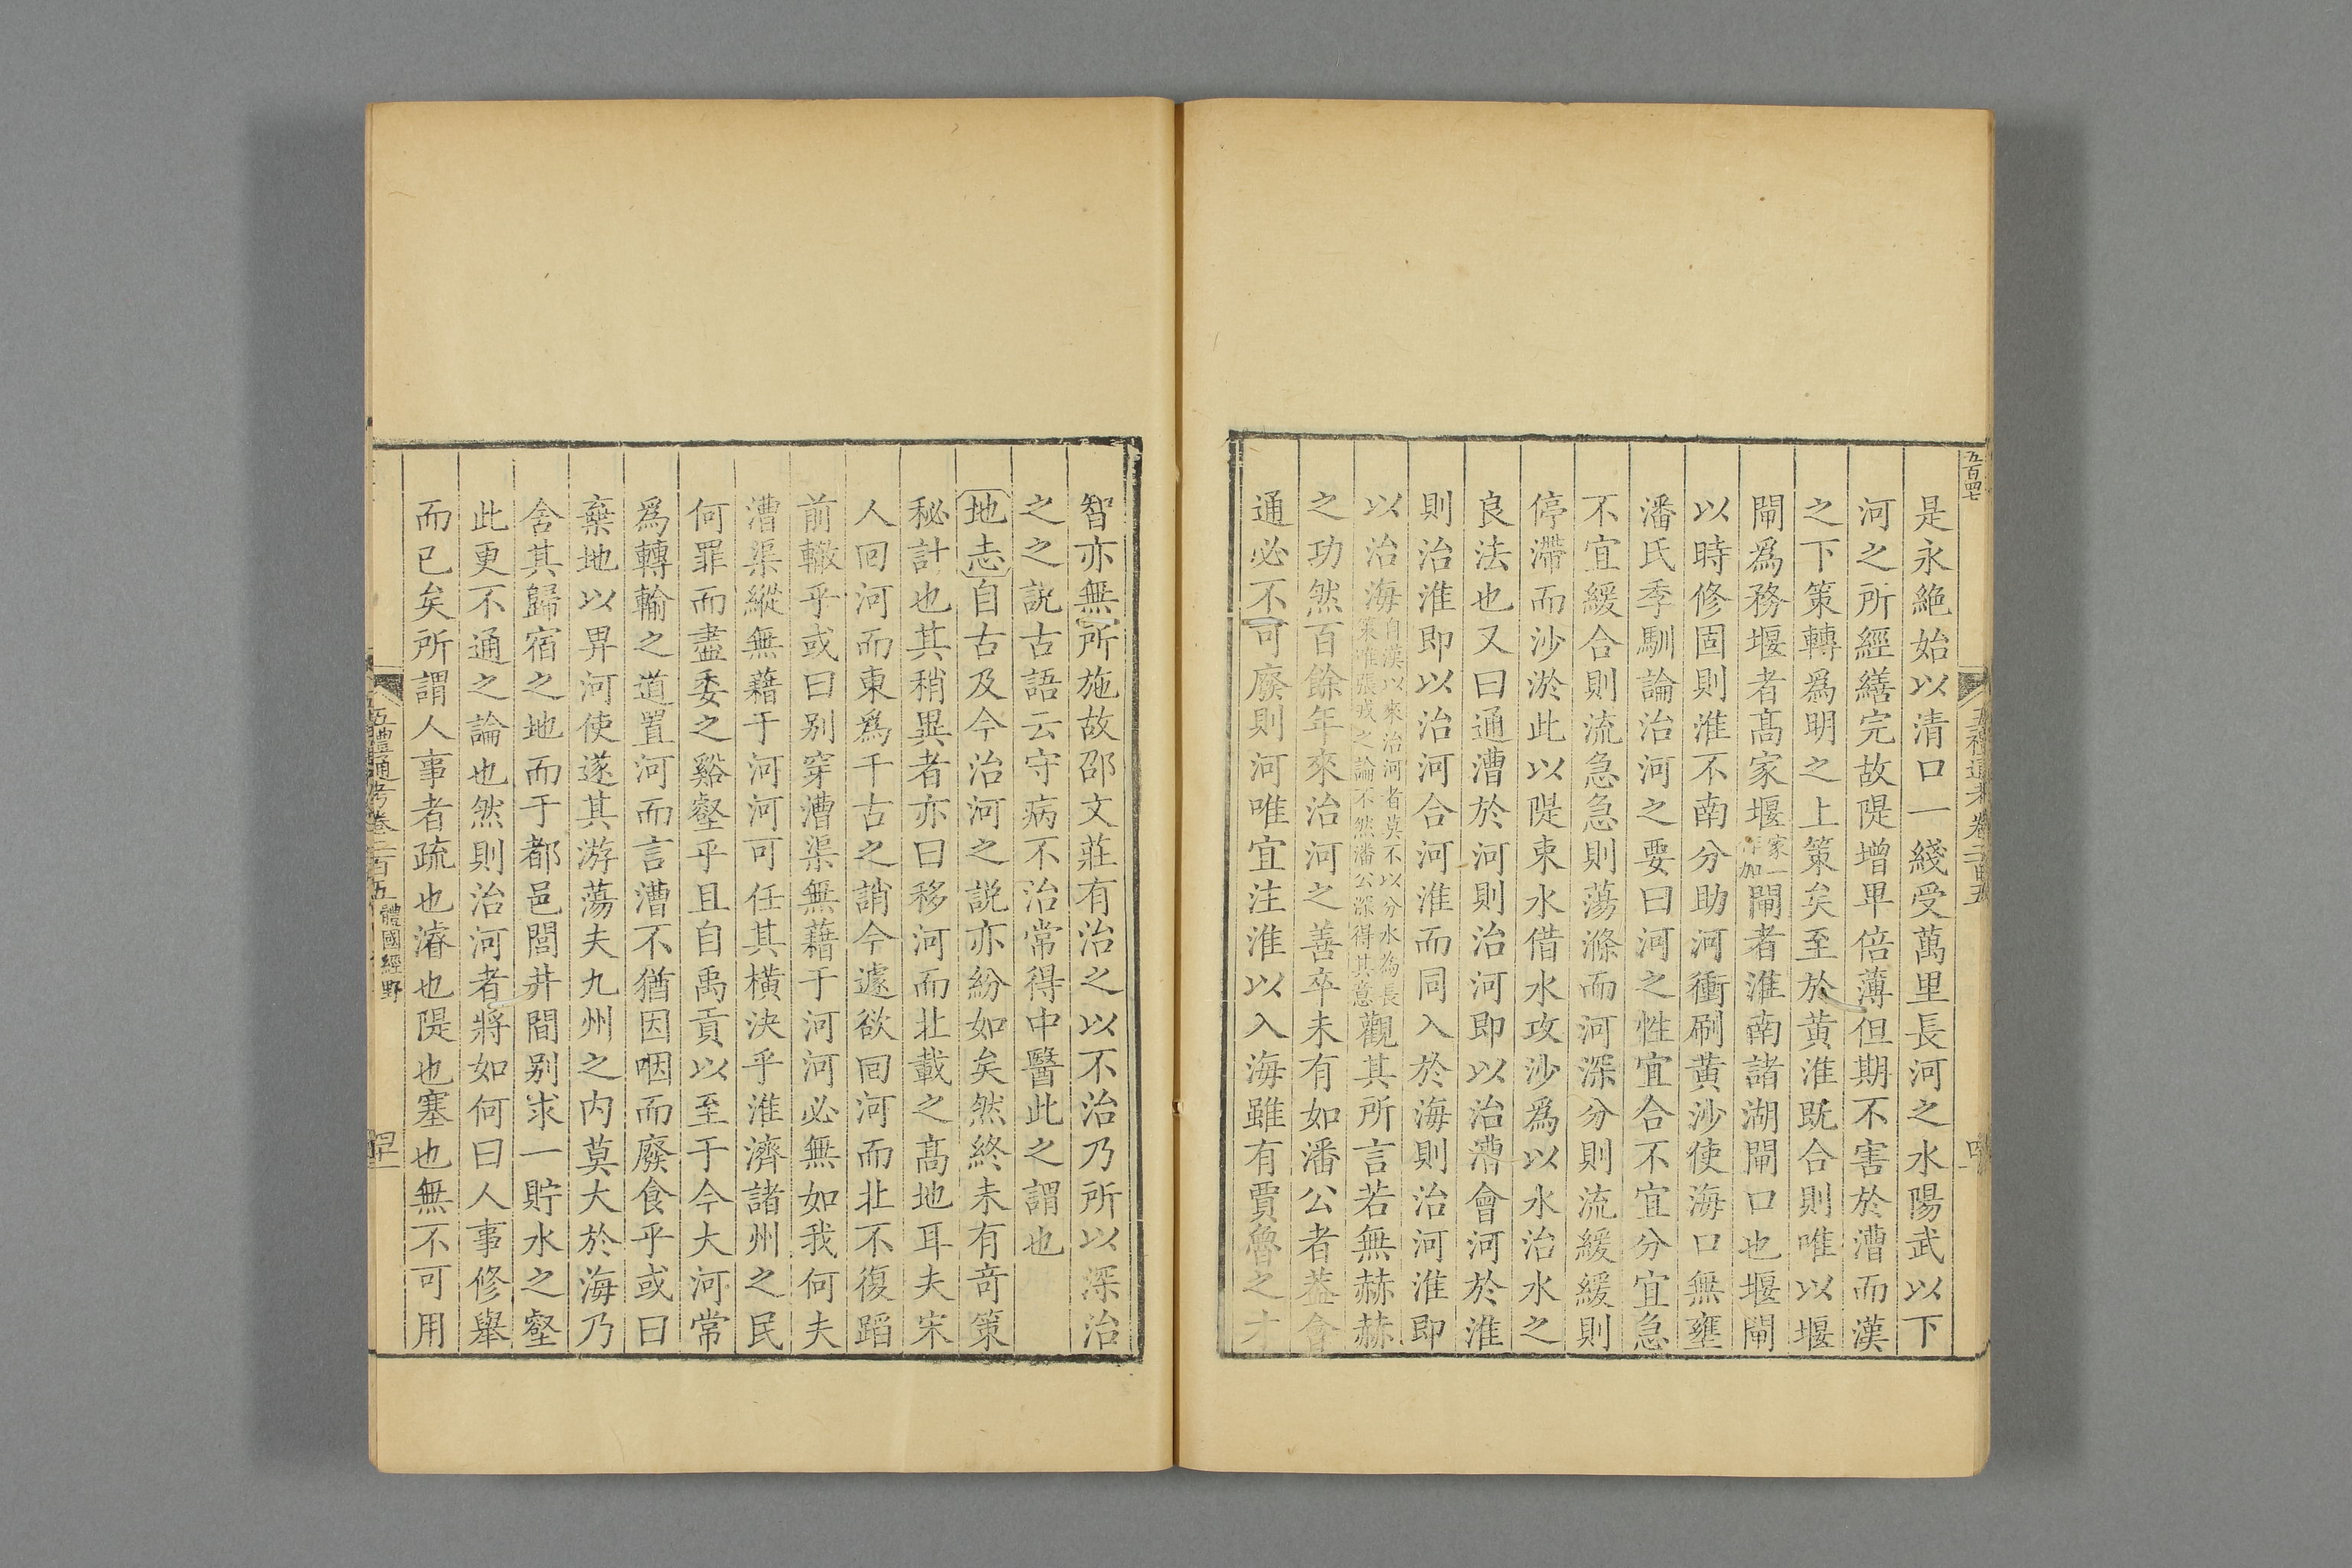 五百四七
是永絶始以清口一綫受萬里長河之水陽武以下
河之所經繕完故隄增卑倍薄但期不害於漕而漢
之下策轉爲明之上策矣至於黄淮既合則唯以堰
閘爲務堰者髙家堰家一作加閘者淮南諸湖閘口也堰閘
以時修固則淮不南分助河衝刷黄沙使海口無壅
潘氏季馴論治河之要曰河之性宜合不宜分宜急
不宜緩合則流急急則蕩滌而河深分則流緩緩則
停滯而沙淤此以隄束水借水攻沙爲以水治水之
良法也又曰通漕於河則治河即以治漕會河於淮
則治淮即以治河合河淮而同入於海則治河淮即
以治海自漢以來治河者莫不以分水為長策唯張戎之論不然潘公深得其意觀其所言若無赫赫
之功然百餘年來治河之善卒未有如潘公者蓋會
通必不可廢則河唯宜注淮以入海雖有賈魯之才
智亦無所施故邵文莊有治之以不治乃所以深治
之之説古語云守病不治常得中醫此之謂也
地志自古及今治河之説亦紛如矣然終未有竒策
秘計也其稍異者亦曰移河而北載之髙地耳夫宋
人回河而東爲千古之誚今遽欲回河而北不復蹈
前轍乎或曰别穿漕渠無藉于河河必無如我何夫
漕渠縱無藉于河河可任其橫決乎淮濟諸州之民
何罪而盡委之谿壑乎且自禹貢以至于今大河常
爲轉輸之道置河而言漕不猶因咽而廢食乎或曰
棄地以畀河使遂其游蕩夫九州之内莫大於海乃
舍其歸宿之地而于都邑閭井間别求一貯水之壑
此更不通之論也然則治河者將如何曰人事修舉
而已矣所謂人事者疏也濬也隄也塞也無不可用
五禮通考卷二百五 體國經野